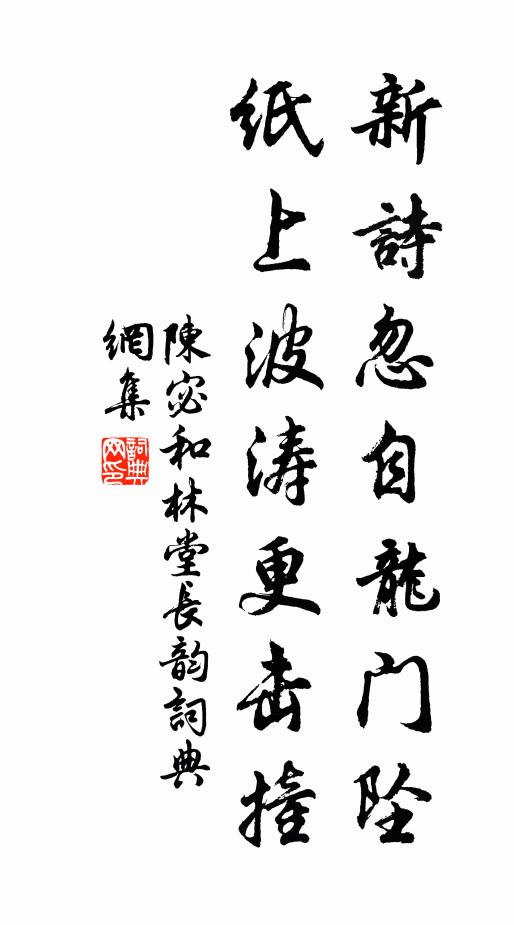 新詩忽自龍门坠
纸上波涛更击撞
陳宓和林堂長韵詞典
網集
詞典网印